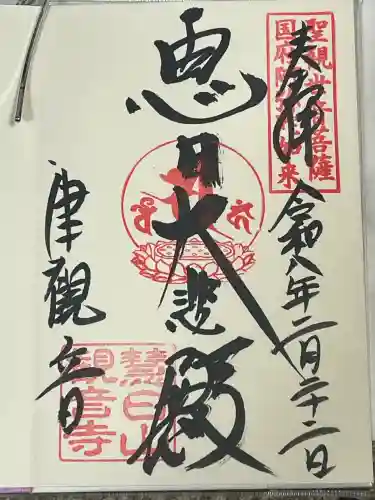 奉拝
令和八年二月二十二日
聖観世音菩薩
国府阿弥陀如来
恵日大悲殿
津觀音
慧日山
観音寺